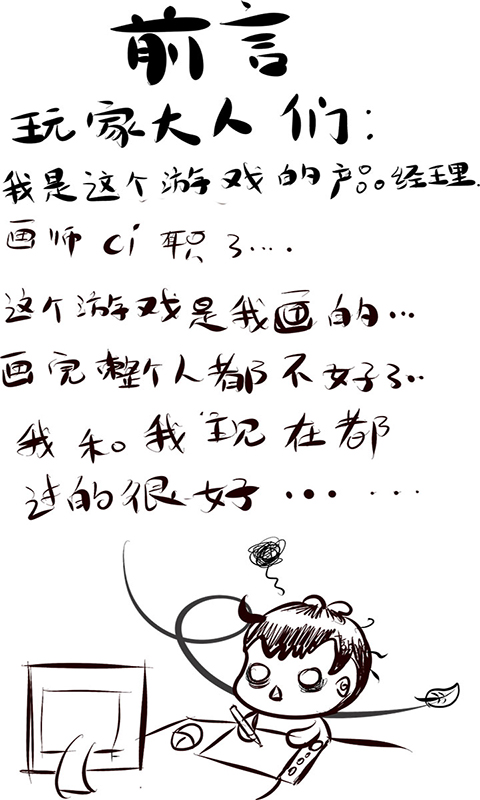 前言
玩家大人们：
我是这个游戏的产品经理.
画师ci职了...
这个游戏是我画的...
画完整个人都不好了..
我和我主现在都
过的很好... ...